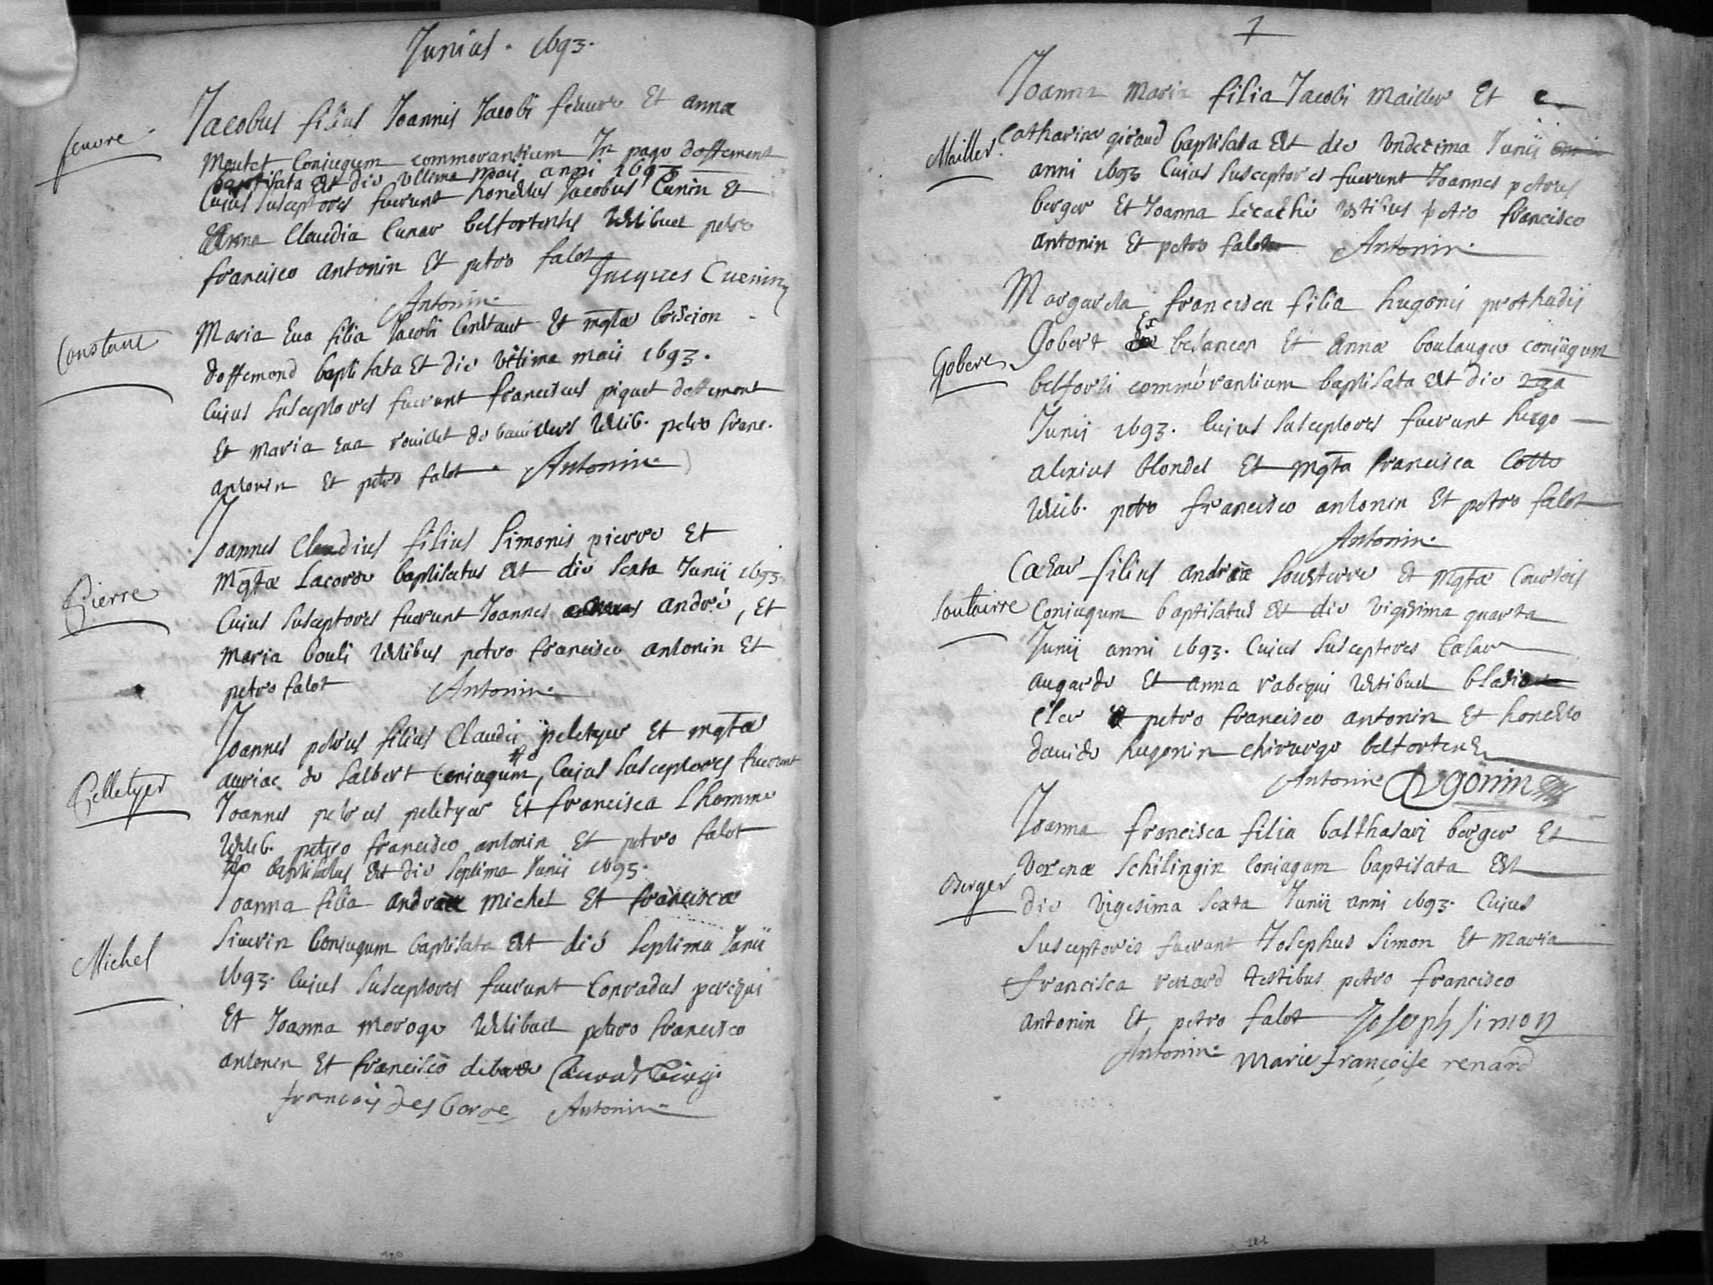 Junius. 1693.
fevvre.
Jacobus filius Joannis Jacobi fevvre Et annæ
Moutet Coniugum commorantium In pago doffemont
baptisata Est die ultima maij anni 1693
Cuius Susceptores fuerunt honestus Jacobus Cunin Et
Anna Claudia Cunar belfortenses testibus petro
francisco antonin Et petro falot Jacques Cuenin
Antonin
Constant
Maria Eva filia Jacobi Constant Et mgtæ
doffemond baptisata Est die ultima maii 1693.
Cuius Susceptores fuerunt franciscus piquet doffemont
Et Maria Eva rouillet de bauillers testib. petro franc.
antonin Et petro falot Antonin
Pierre
Joannes Claudius filius Simonis pierre Et
Mgtæ Lacorde baptisatus Est die Sexta Junii 1693
Cuius Susceptores fuerunt Joannes andré, Et
Maria bouli testibus petro francisco antonin Et
petro falot Antonin
Pelletyer
Joannes petrus filius Claudii peletyer Et mgtæ
auriac de Salbert Coniugum, Cuius Susceptores fuerunt
Joannes petrus peletyer Et francisca Lhomme
testib. petro francisco antonin Et petro falot
baptisatus Est die Septima Junii 1693.
Michel
Joanna filia andreæ Michel Et franciscæ
Siverin Coniugum baptisata Est die Septima Junii
1693. Cuius Susceptores fuerunt Conradus
Et Joanna Moroge testibus petro francisco
antonin Et francisco
françois des Antonin
7
Joanna Maria filia Jacobi Mailler Et
Mailler
Catharinæ giraud baptisata Est die undecima Junij
anni 1693 Cuius Susceptores fuerunt Joannes petrus
berger Et Joanna testibus petro francisco
antonin Et petro falot Antonin
Margareta francisca filia hugonis prothadij
Gobert
Gobert Ex besançon Et annæ boulanger coniugum
belforti commorantium baptisata Est die 23a
Junij 1693. Cuius Susceptores fuerunt hugo
alexius blondel Et mgta francisca Cotto
testib. petro francisco antonin Et petro falot
Antonin
Cæsar filius andreæ Sousterre Et mgtæ Courtois
Soutairre
Coniugum baptisatus Est die vigesima quarta
Junij anni 1693. Cuius Susceptores Cæsar
augarde Et anna testibus
petro francisco antonin Et honesto
davide hugonin chirurgo belfortensi
Antonin Vgonin
Joanna francisca filia balthasari berger Et
Verenæ Schilingin Coniugum baptisata Est
Berger
die vigesima Sexta Junij anni 1693. Cuius
Susceptores fuerunt Josephus Simon Et Maria
francisca renard testibus petro francisco
antonin Et petro falot Joseph Simon
Antonin Marie françoise renard